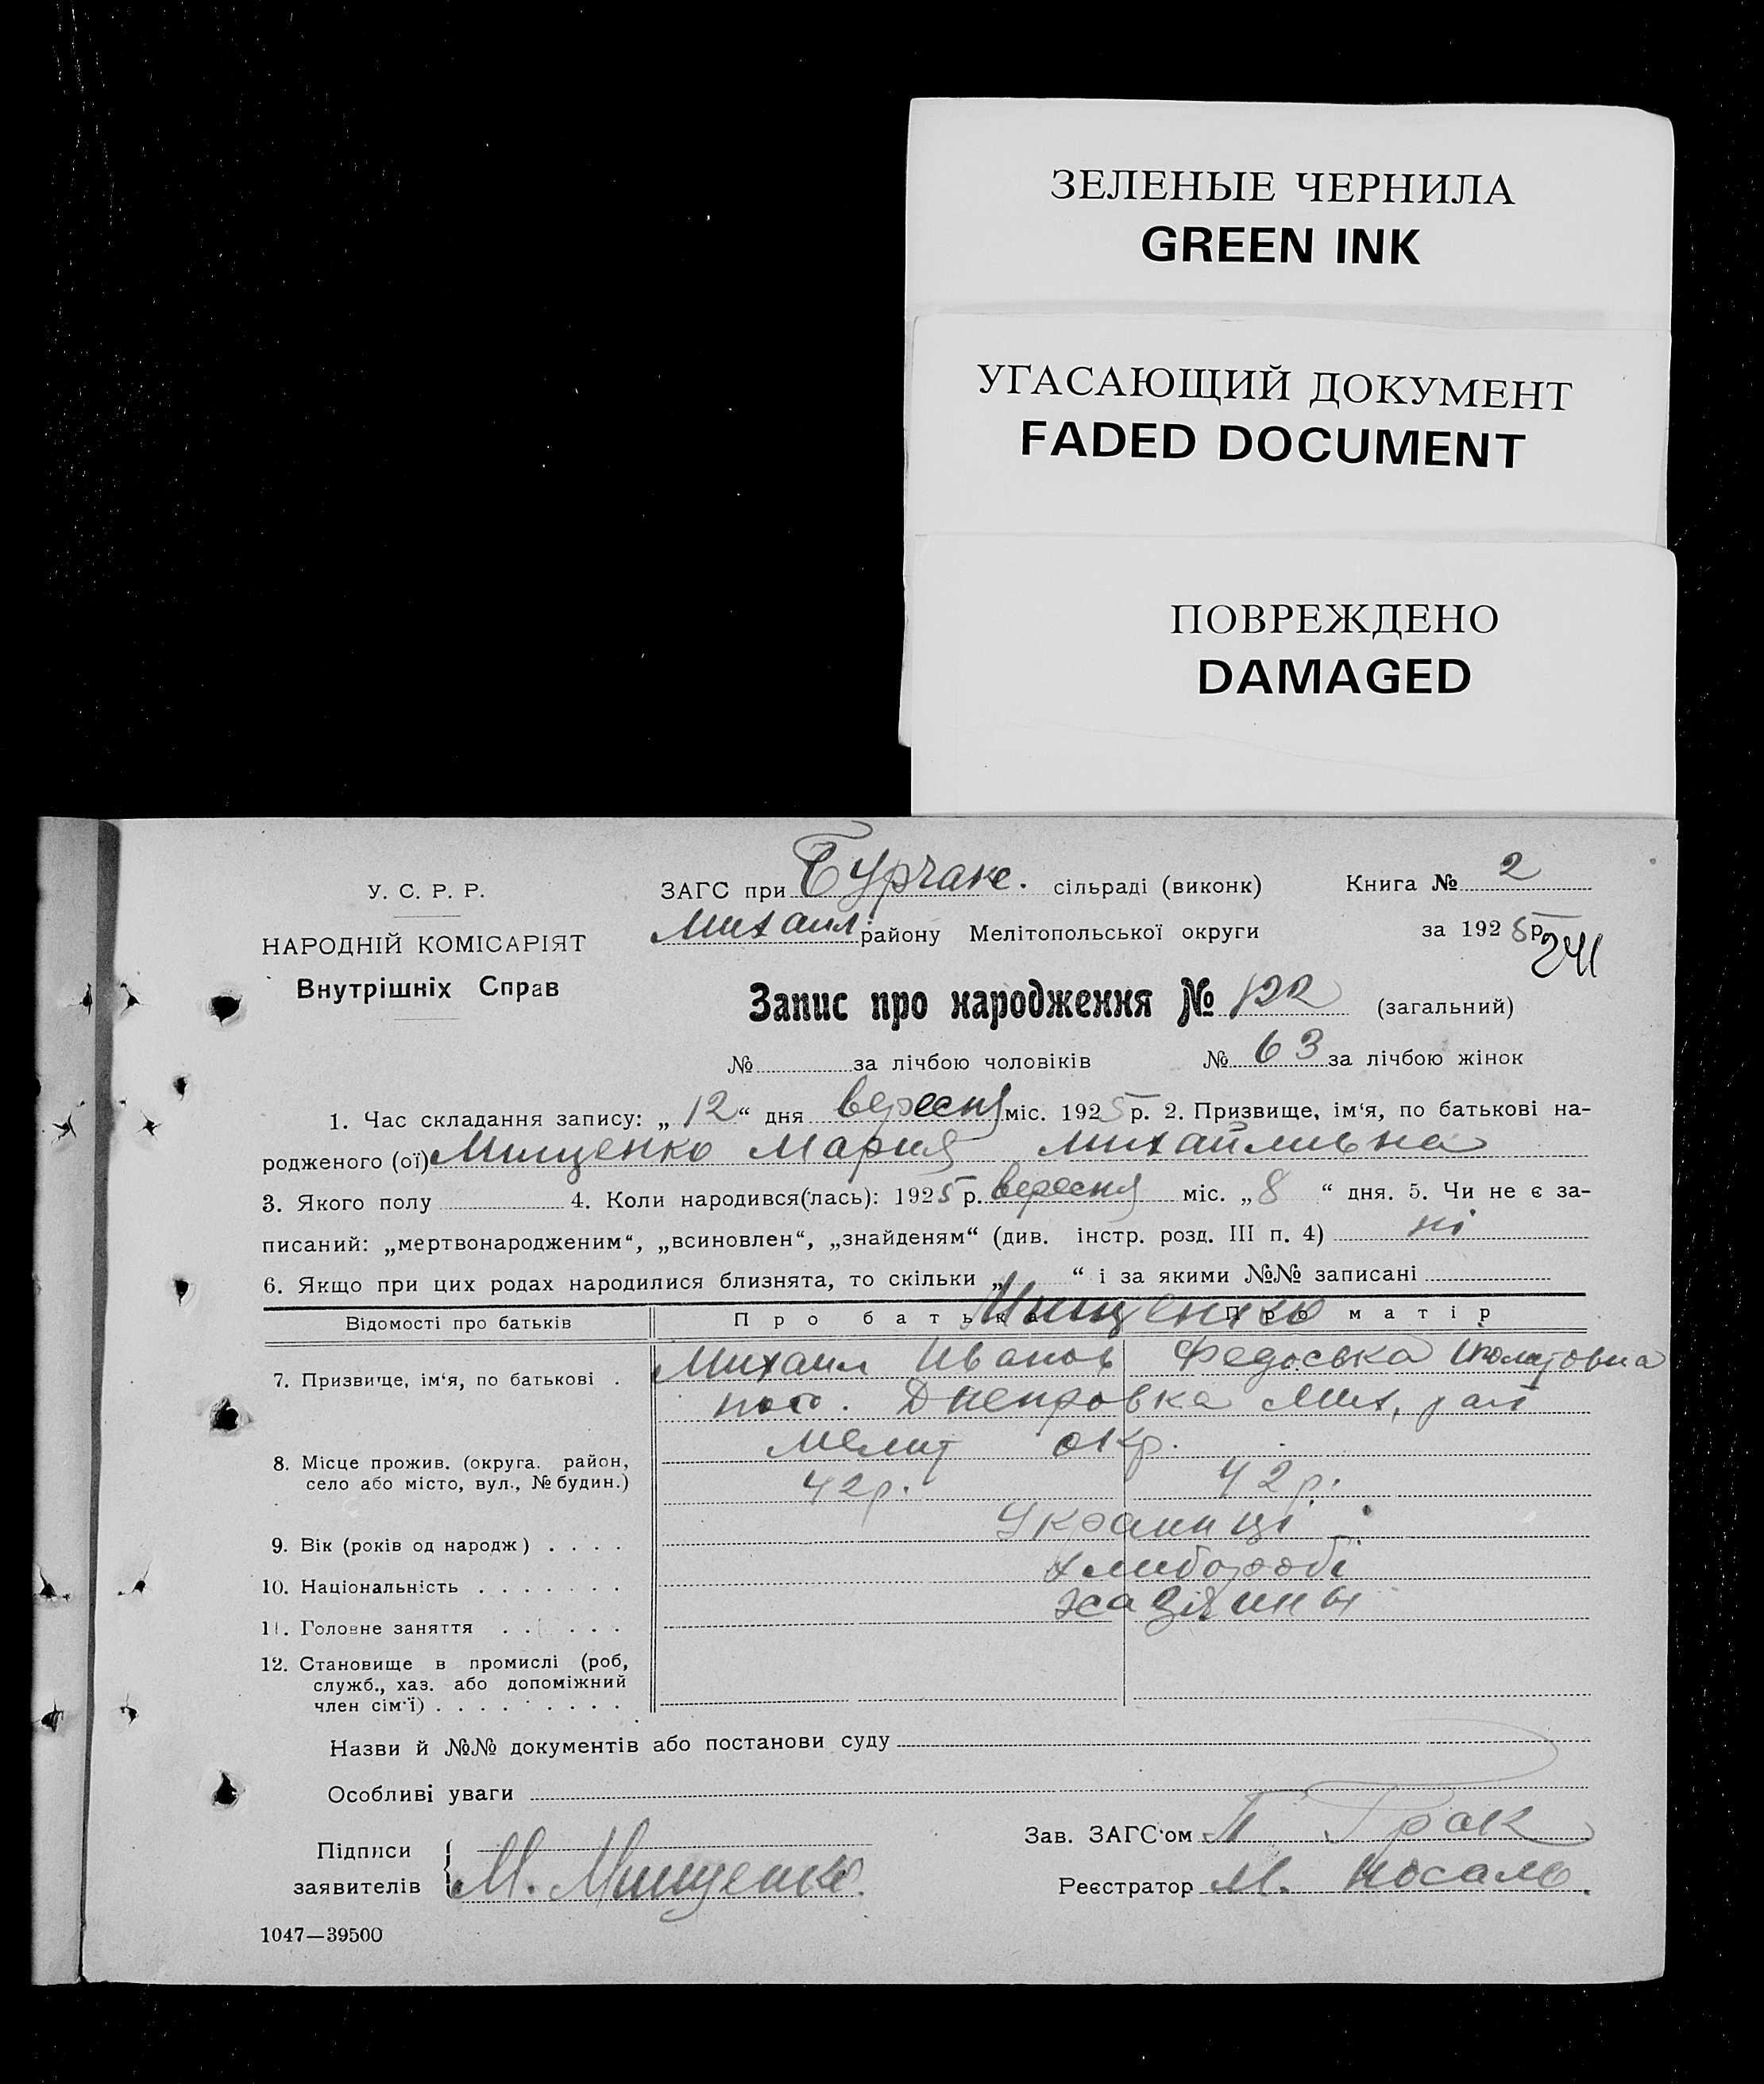 ЗЕЛЕНЫЕ ЧЕРНИЛА
GREEN INK
УГАСАЮЩИЙ ДОКУМЕНТ
FADED DOCUMENT
ПОВРЕЖДЕНО
DAMAGED
У. С. Р. Р.
НАРОДНІЙ КОМІСАРІЯТ
Внутрішніх Справ
ЗАГС при Бурчак. сільраді (виконк) Книга № 2
Михаил району Мелітопольської округи за 1925 р.
241
Запис про народження № 122 (загальний)
№ за лічбою чоловіків № 63 за лічбою жінок
1. Час складання запису: „12“ дня вересня міс. 1925 р. 2. Призвище, ім‘я, по батькові на-
родженого (ої) Мищенко Мария Михайливна
3. Якого полу 4. Коли народився(лась): 1925 р. вересня міс. „8“ дня. 5. Чи не є за-
писаний: „мертвонародженим“, „всиновлен“, „знайденям“ (див. інстр. розд. III п. 4) ні
6. Якщо при цих родах народилися близнята, то скільки „ “ і за якими №№ записані
Відомості про батьків Про батька Про матір
Мищенко
7. Призвище, ім‘я, по батькові . Михаил Иванов Федоська
Днепровка Мих, рай
Мелит окр.
8. Місце прожив. (округа, район,
село або місто, вул., № будин.)
42р. 42р.
Украинці
9. Вік (років од народж) . . . .
хлибороби
10. Національність . . . . . . .
хазяины
11. Головне заняття . . . . .
12. Становище в промислі (роб,
служб., хаз. або допоміжний
член сім‘ї) . . . . . . . . .
Назви й №№ документів або постанови суду
Особливі уваги
Підписи
заявителів М. Мищенко.
Зав. ЗАГС‘ом П. Грак
Реєстратор М. Носаль.
1047—39500